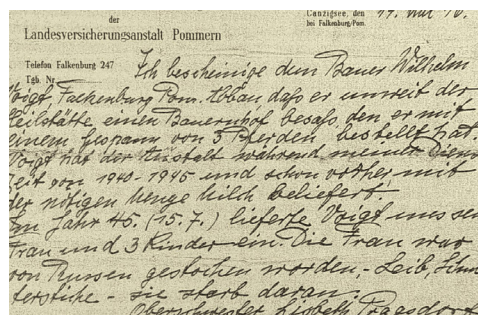 der
Canzigsee, den
Landesversicherungsanstalt Pommern
bei Falkenburg/Pom.
Telefon Falkenburg 247
Tgb. Nr.
Ich bescheinige dem Bauer Wilhelm
Voigt, Falkenburg Pom. Abbau, daß er unweit der
Heilstätte einen Bauernhof besaß, den er mit
einem Gespann von 3 Pferden bestellt hat.
Voigt hat der Anstalt während meiner Dienst
zeit von 1940-1945 und schon vorher mit
der nötigen Menge Milch beliefert.
Im Jahr 45. (15.7.) lieferte Voigt uns sei
Frau und 3 Kinder ein. Die Frau war
von Russen gestochen worden, - Leib,
terstiche - sie starb daran.
Oberschwester Lisbeth